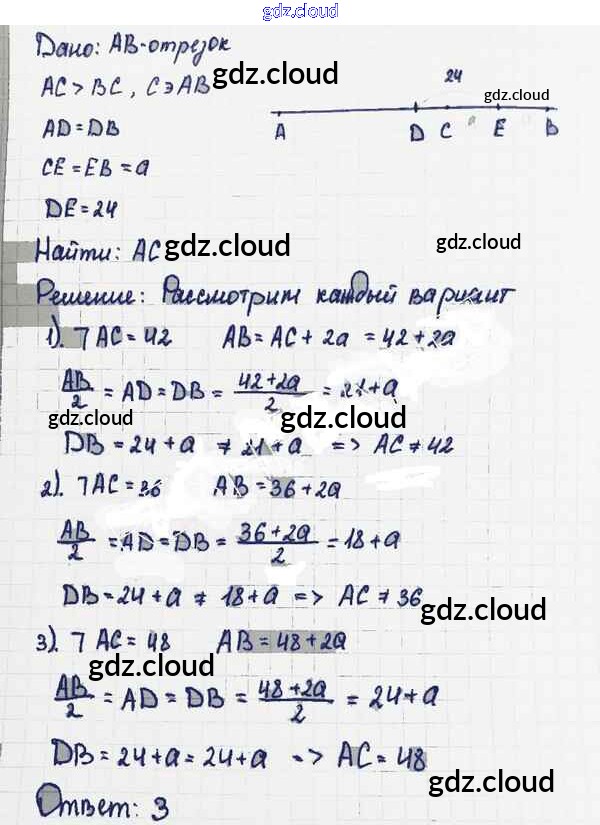 gdz.cloud
Дано: AB-отрезок
AC > BC, C∋AB
gdz.cloud
24
gdz.cloud
A D C a E B
AD = DB
CE = EB = a
DE = 24
Найти: AC
gdz.cloud
gdz.cloud
Решение: Рассмотрим каждый вариант
1). ⅂ AC = 42 AB = AC + 2a = 42 + 2a
AB/2 = AD = DB = (42+2a)/2 = 21 + a
gdz.cloud
gdz.cloud
DB = 24 + a ≠ 21 + a => AC ≠ 42
2). ⅂ AC = 36 AB = 36 + 2a
AB/2 = AD = DB = (36+2a)/2 = 18 + a
DB = 24 + a ≠ 18 + a => AC ≠ 36
gdz.cloud
3). ⅂ AC = 48 AB = 48 + 2a
gdz.cloud
AB/2 = AD = DB = (48+2a)/2 = 24 + a
DB = 24 + a = 24 + a => AC = 48
gdz.cloud
Ответ: 3
gdz.cloud